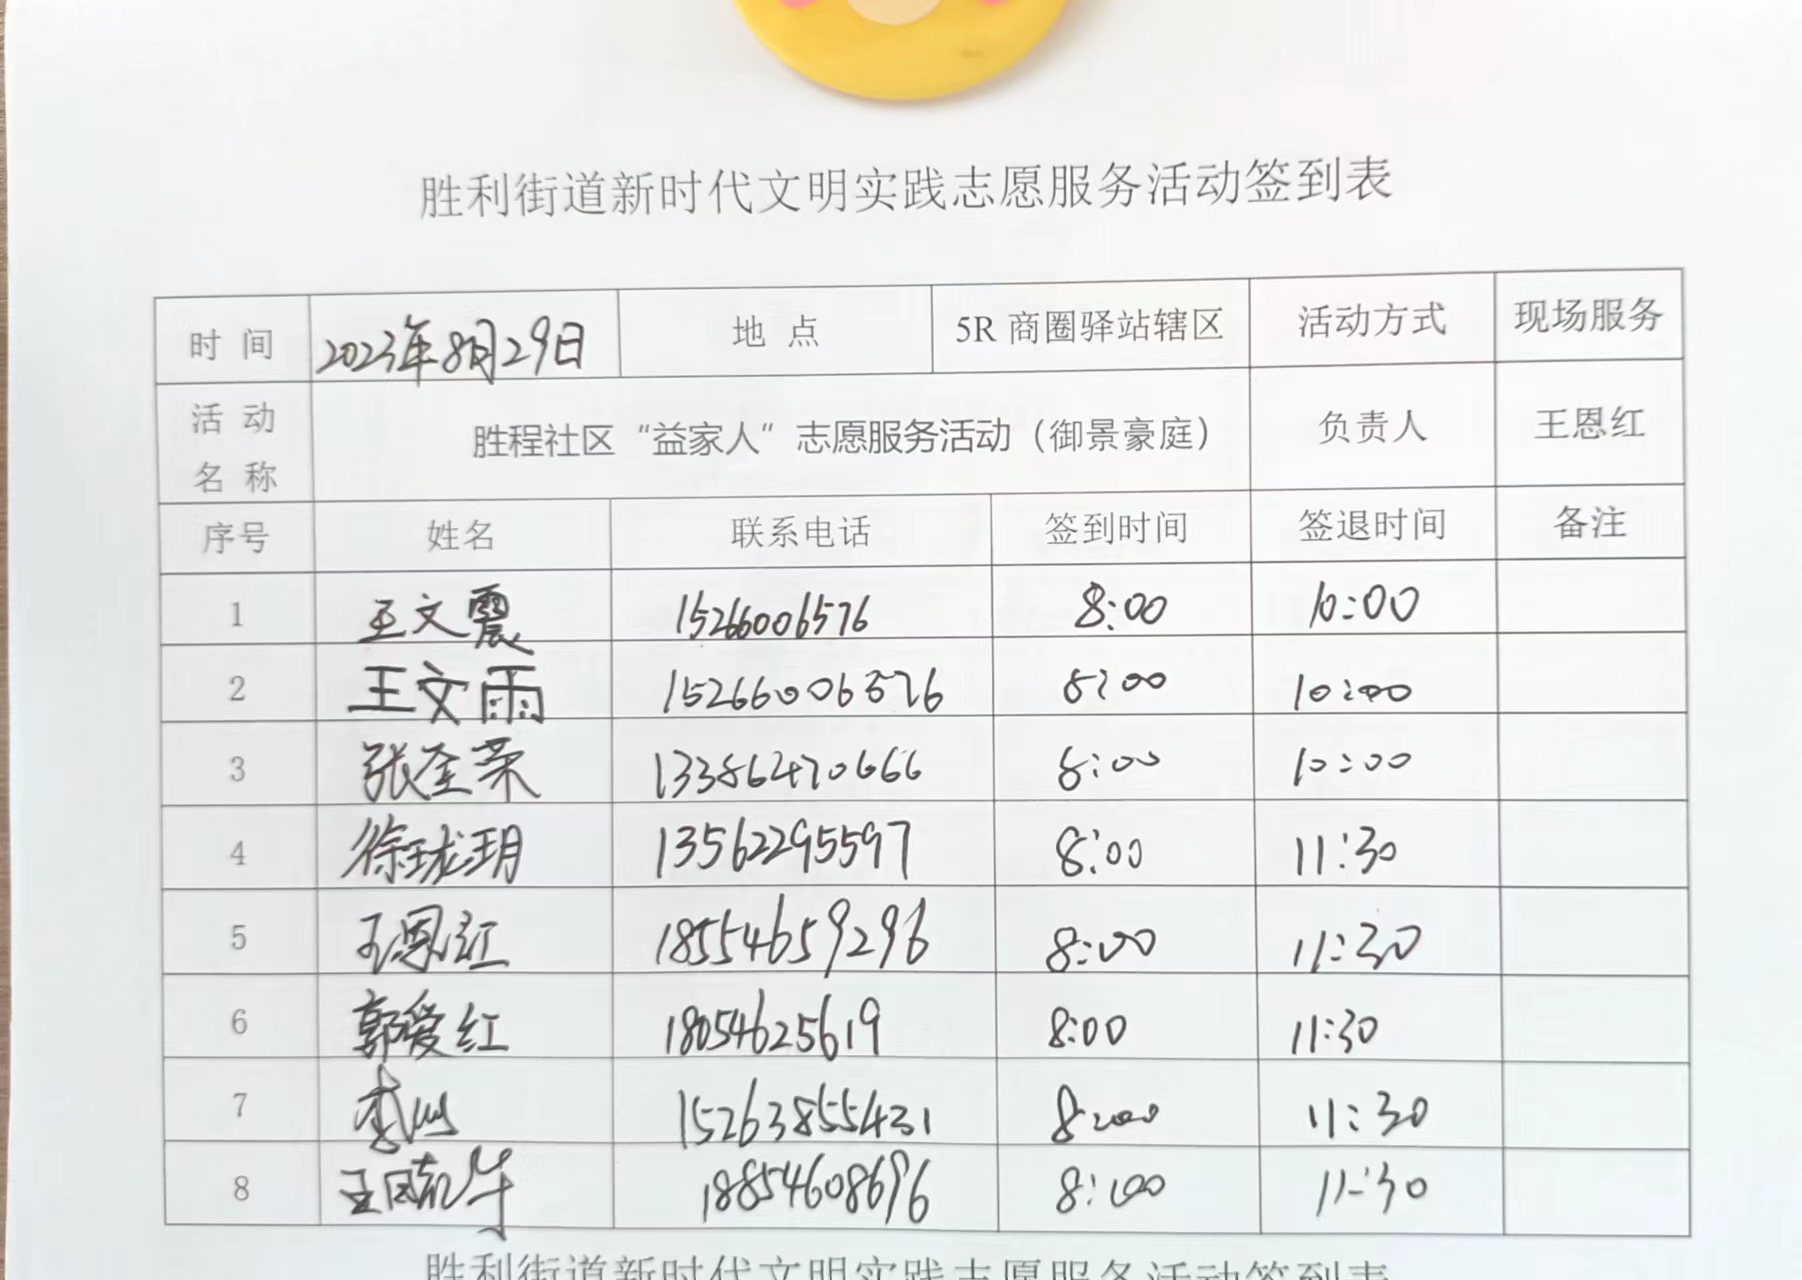 胜利街道新时代文明实践志愿服务活动签到表
时 间 2023年8月29日 地 点 5R 商圈驿站辖区 活动方式 现场服务
活 动 名 称 胜程社区“益家人”志愿服务活动（御景豪庭） 负责人 王恩红
序号 姓名 联系电话 签到时间 签退时间 备注
1 王文震 15266006576 8:00 10:00
2 王文雨 15266006576 8:00 10:00
3 张荣 13386470666 8:00 10:00
4 徐珑玥 13562295597 8:00 11:30
5 王恩红 18554659296 8:00 11:30
6 郭爱红 18054625619 8:00 11:30
7 李 15263855431 8:00 11:30
8 王 18854608696 8:00 11:30
胜利街道新时代文明实践志愿服务活动签到表